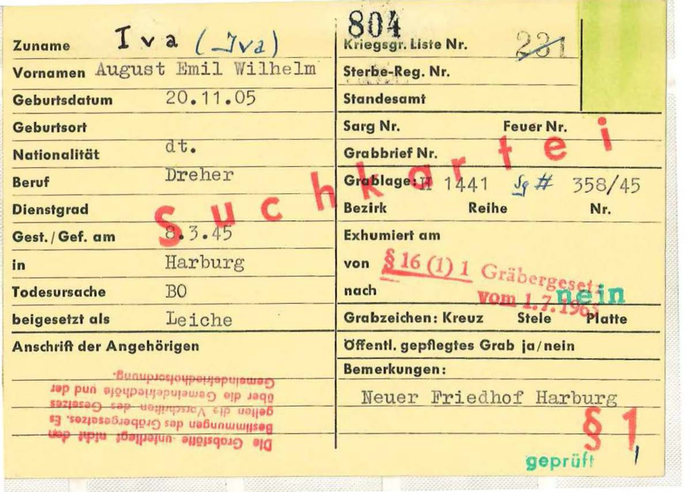 Zuname Iva (Iva)
Vornamen August Emil Wilhelm
Geburtsdatum 20.11.05
Geburtsort
Nationalität dt.
Beruf Dreher
Dienstgrad
Gest./Gef. am 8.3.45
in Harburg
Todesursache BO
beigesetzt als Leiche
Anschrift der Angehörigen
Die Grabstätte unterliegt nicht den
Bestimmungen des Gräbergesetzes. Es
gelten die Vorschriften des Gesetzes
über die Gemeindefriedhöfe und der
Gemeindefriedhofsordnung.
804
Kriegsgr. Liste Nr. 231
Sterbe-Reg. Nr.
Standesamt
Sarg Nr. Feuer Nr.
Grabbrief Nr.
Suchkartei
Grablage: H 1441 Sg # 358/45
Bezirk Reihe Nr.
Exhumiert am
von § 16 (1) 1 Gräbergesetz
nach vom 1.7.1965 nein
Grabzeichen: Kreuz Stele Platte
Öffentl. gepflegtes Grab ja/nein
Bemerkungen:
Neuer Friedhof Harburg
§ 1
geprüft